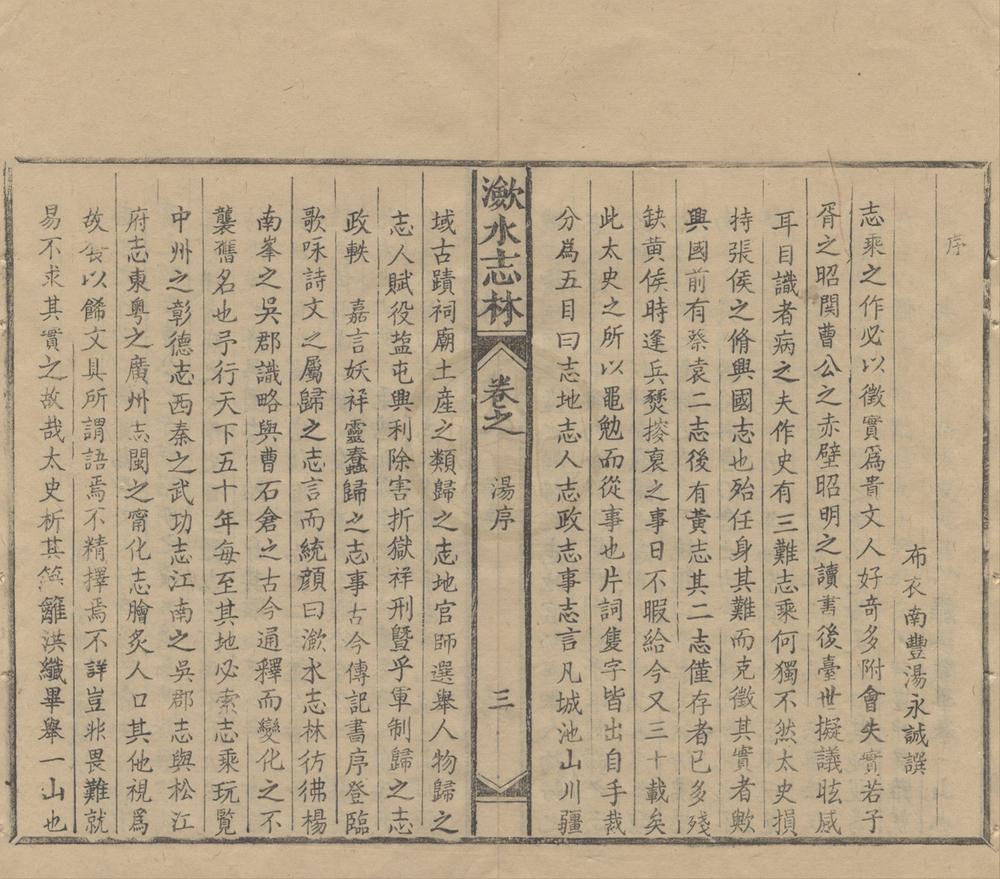 序
布衣南豐湯永誠譔
志乘之作必以徵實爲貴文人好奇多附會失實若子
胥之昭関曹公之赤壁昭明之讀書後臺世擬議眩惑
耳目識者病之夫作史有三難志乘何獨不然太史損
持張侯之脩興國志也殆任身其難而克徵其實者歟
興國前有蔡袁二志後有黄志其二志僅存者已多殘
缺黄侯時逢兵燹搜裒之事日不暇給今又三十載矣
此太史之所以黽勉而從事也片詞隻字皆出自手裁
分爲五目曰志地志人志政志事志言凡城池山川疆
瀲水志林
卷之
湯序
三
域古蹟祠廟土産之類歸之志地官師選舉人物歸之
志人賦役盐屯興利除害折獄祥刑曁乎軍制歸之志
政軼 嘉言妖祥靈蠢歸之志事古今傳記書序登臨
歌咏詩文之屬歸之志言而統顔曰瀲水志林彷彿楊
南峯之吳郡識略與曹石倉之古今通釋而變化之不
襲舊名也予行天下五十年每至其地必索志乘玩覧
中州之彰德志西秦之武功志江南之吳郡志與松江
府志東粤之廣州志閩之甯化志膾炙人口其他視爲
故套以餙文具所謂語焉不精擇焉不詳豈非畏難就
易不求其實之故哉太史析其籬洪纖畢舉一山也